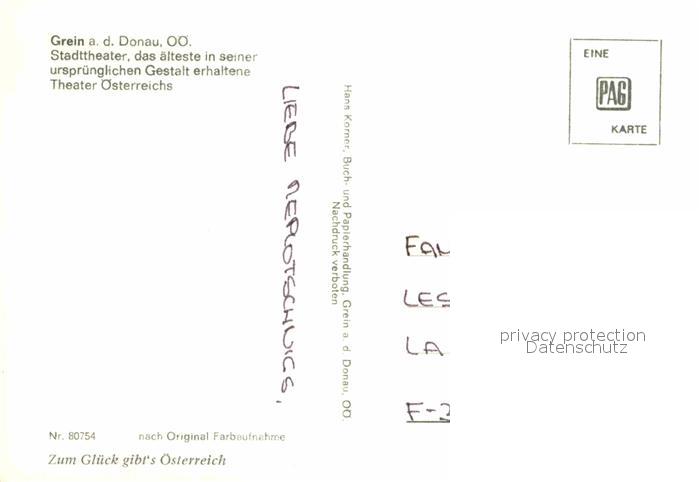 Grein a. d. Donau, OÖ.
Stadttheater, das älteste in seiner
ursprünglichen Gestalt erhaltene
Theater Österreichs
LIEBE
Hans Korner, Buch- und Papierhandlung, Grein a. d. Donau, OÖ.
Nachdruck verboten
EINE
PAG
KARTE
FAL
LES
LA
F-3
privacy protection
Datenschutz
Nr. 80754 nach Original Farbaufnahme
Zum Glück gibt's Österreich